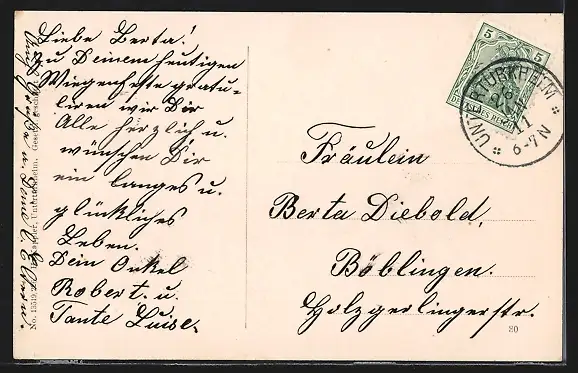 Liebe Berta!
zu Deinem heutigen
Wiegenfeste gratu-
liren wir Dir
Alle herzlich u.
wünschen Dir
ein langes u.
glückliches
Leben.
Dein Onkel
Robert. u.
Tante Luise.
Fräulein
Berta Diebold,
Böblingen.
Holzgerlingerstr.
5 5
DEUTSCHES REICH
UNTERTÜRKHEIM
11
6-7N
30
No. 13519 Untertürkheim. Gesetzl. geschützt.